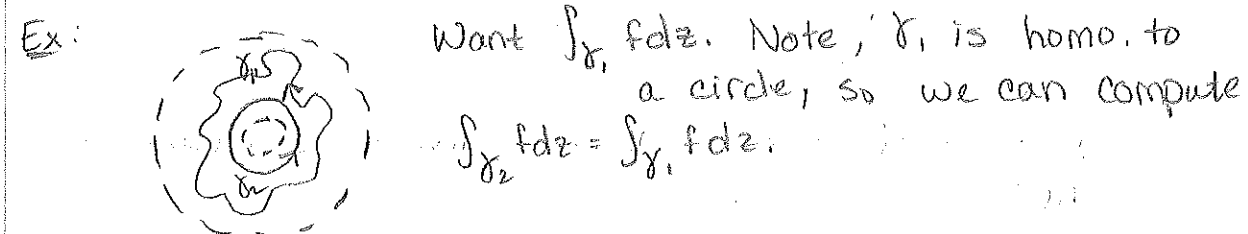 Ex:
Want ∫γ₁ fdz. Note, γ₁ is homo. to
a circle, so we can compute
∫γ₂ fdz = ∫γ₁ fdz.
γ₁
γ₂